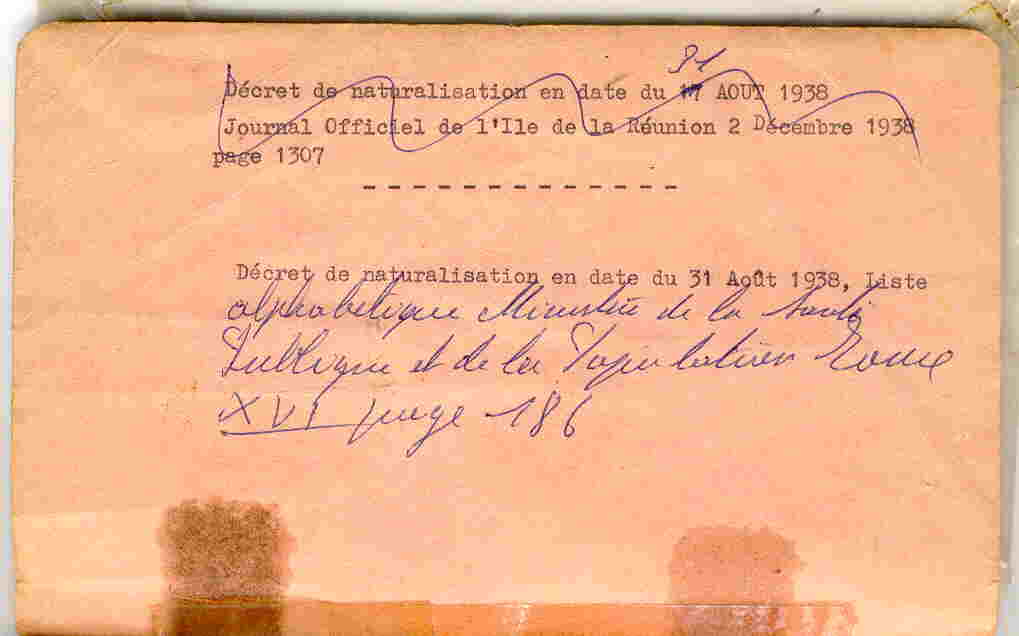 31
Décret de naturalisation en date du 17 AOUT 1938
Journal Officiel de l'Ile de la Réunion 2 Décembre 1938
page 1307
- - - - - - - - - - - - - -
Décret de naturalisation en date du 31 Août 1938, Liste
alphabétique Ministère de la Santé
Publique et de la Population Tome
XVI page 186